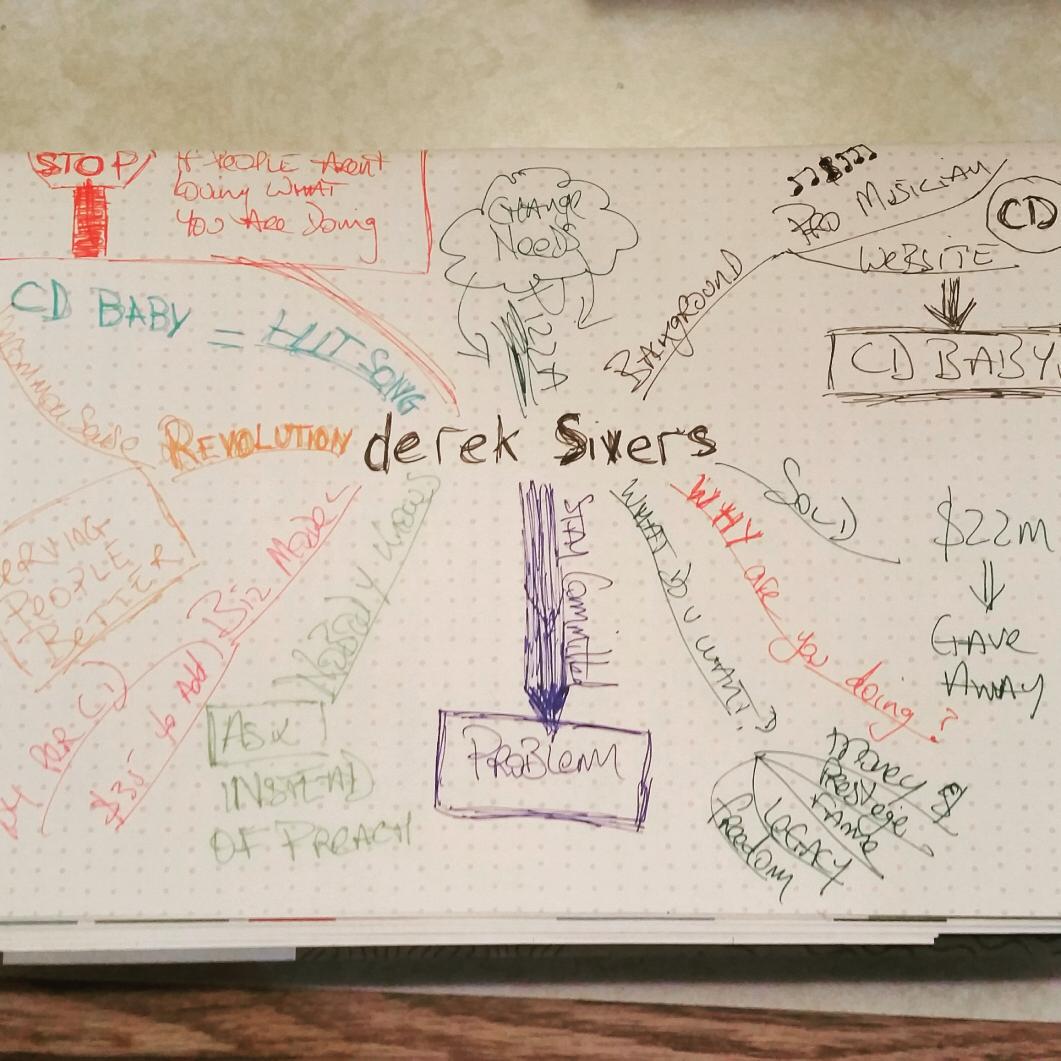 STOP!
If PEOPLE Aren't
Loving WHAT
You Are Doing
CHANGE
NEEDS
PIZZA
PRO MUSICIAN
CD
WEBSITE
CD BABY
BACKGROUND
CD BABY = HIT SONG
REVOLUTION
derek Sivers
SERVING
PEOPLE
BETTER
Biz Model
PER CD
$35 to Add
NoBoDy Knows
ASK
INSTEAD
OF PREACH
STAY Committed
PROBLEM
WHAT DO U WANT?
WHY are you doing?
SOLD
$22M
GAVE
AWAY
Money $
Prestige
FAME
LEGACY
freedom